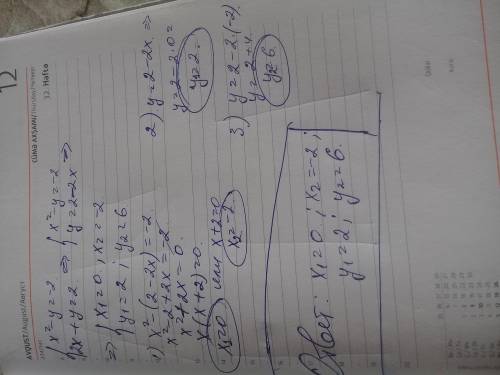 12
AVQUST/August/Август
CÜMƏ AXŞAMI/Thursday/Четверг
32. Həftə
{x²-y=-2 ⇒ {x²-y=-2
{2x+y=2 {y=2-2x ⇒
⇒ {x₁=0; x₂=-2
{y₁=2; y₂=6
1) x²-(2-2x)=-2
x²-2+2x=-2
x²+2x=0.
x(x+2)=0.
x₁=0 или x+2=0
x₂=-2
2) y=2-2x ⇒
y=2-2·0=
y₁=2.
3) y=2-2·(-2).
y=2+4.
y₂=6.
Ответ: x₁=0; x₂=-2;
y₁=2; y₂=6.